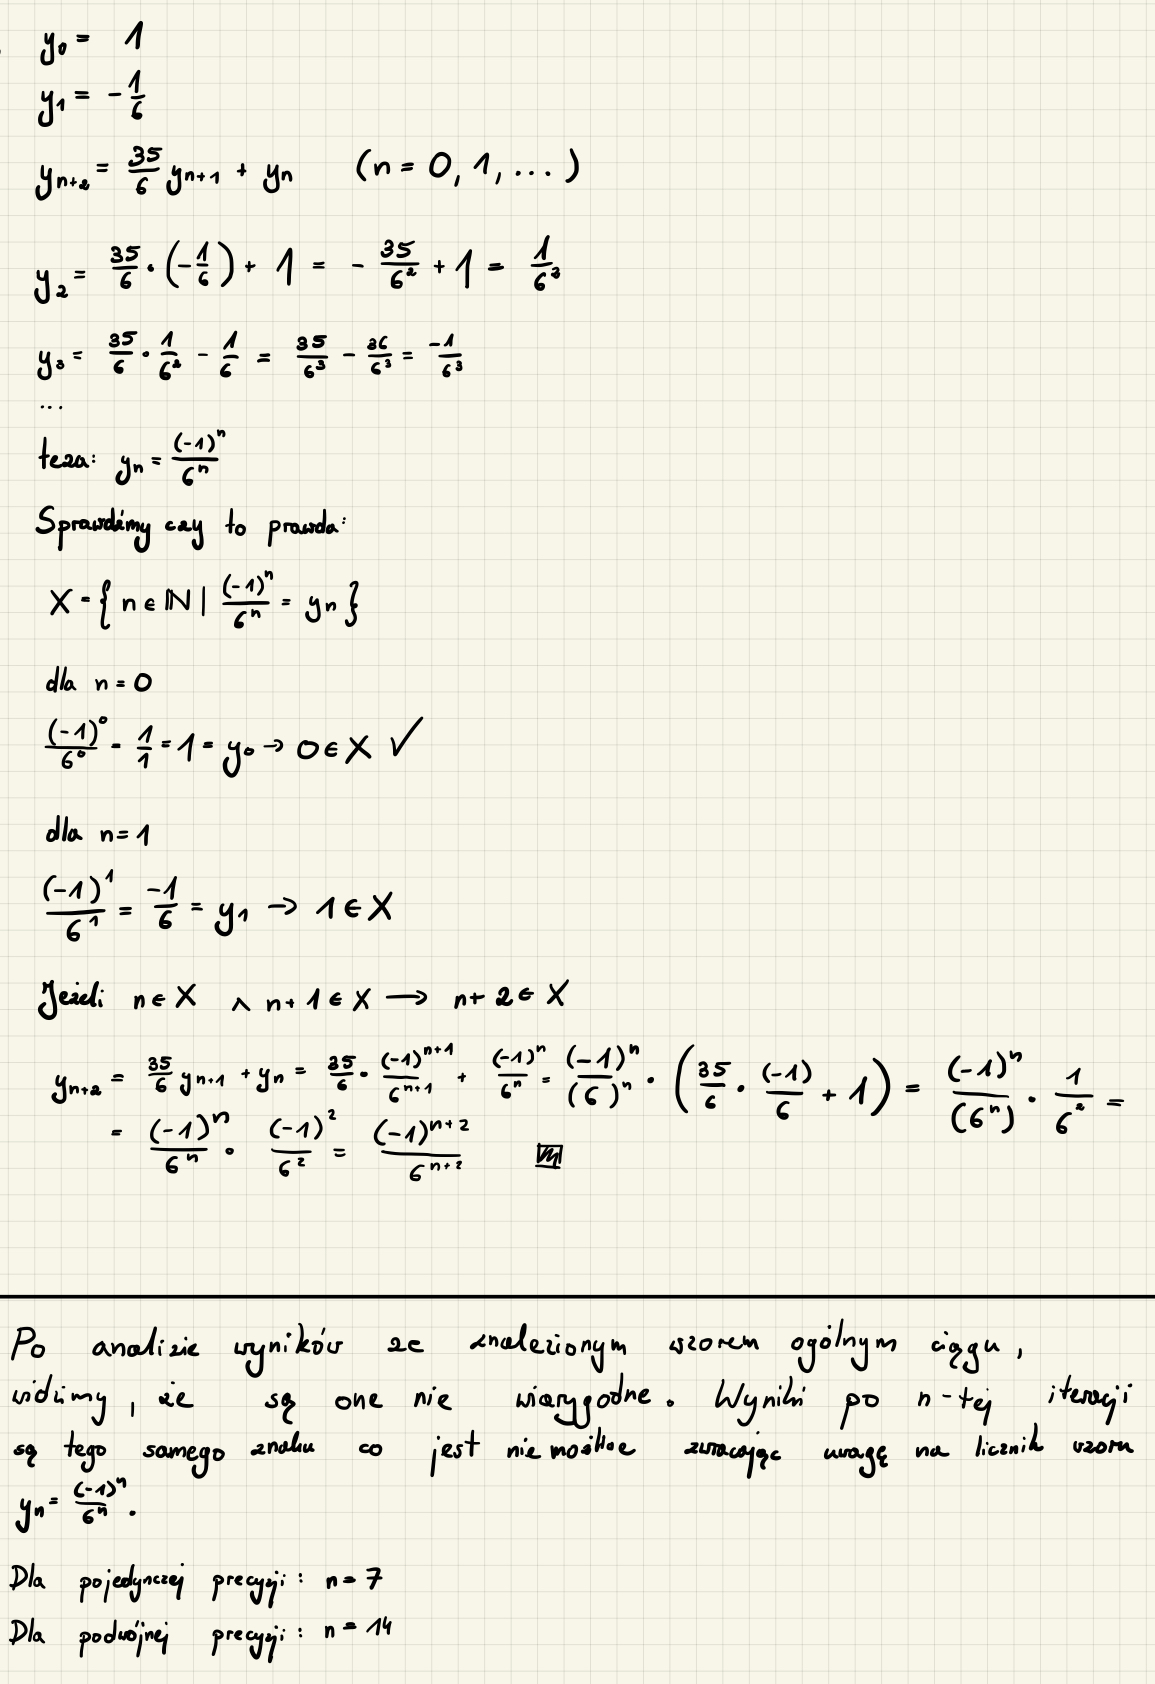 y₀ = 1
y₁ = -1/6
yₙ₊₂ = 35/6 yₙ₊₁ + yₙ (n = 0, 1, ...)
y₂ = 35/6 · (-1/6) + 1 = - 35/6² + 1 = 1/6²
y₃ = 35/6 · 1/6² - 1/6 = 35/6³ - 36/6³ = -1/6³
...
teza: yₙ = (-1)ⁿ/6ⁿ
Sprawdźmy czy to prawda:
X = { n ∈ ℕ | (-1)ⁿ/6ⁿ = yₙ }
dla n = 0
(-1)⁰/6⁰ = 1/1 = 1 = y₀ → 0 ∈ X ✓
dla n = 1
(-1)¹/6¹ = -1/6 = y₁ → 1 ∈ X
Jeżeli n ∈ X ∧ n + 1 ∈ X → n + 2 ∈ X
yₙ₊₂ = 35/6 yₙ₊₁ + yₙ = 35/6 · (-1)ⁿ⁺¹/6ⁿ⁺¹ + (-1)ⁿ/6ⁿ = (-1)ⁿ/(6)ⁿ · (35/6 · (-1)/6 + 1) = (-1)ⁿ/(6ⁿ) · 1/6² =
= (-1)ⁿ/6ⁿ · (-1)²/6² = (-1)ⁿ⁺²/6ⁿ⁺²
Po analizie wyników ze znalezionym wzorem ogólnym ciągu,
widzimy, że są one nie wiarygodne. Wyniki po n-tej iteracji
są tego samego znaku co jest niemożliwe zwracając uwagę na licznik wzoru
yₙ = (-1)ⁿ/6ⁿ.
Dla pojedynczej precyzji: n = 7
Dla podwójnej precyzji: n = 14